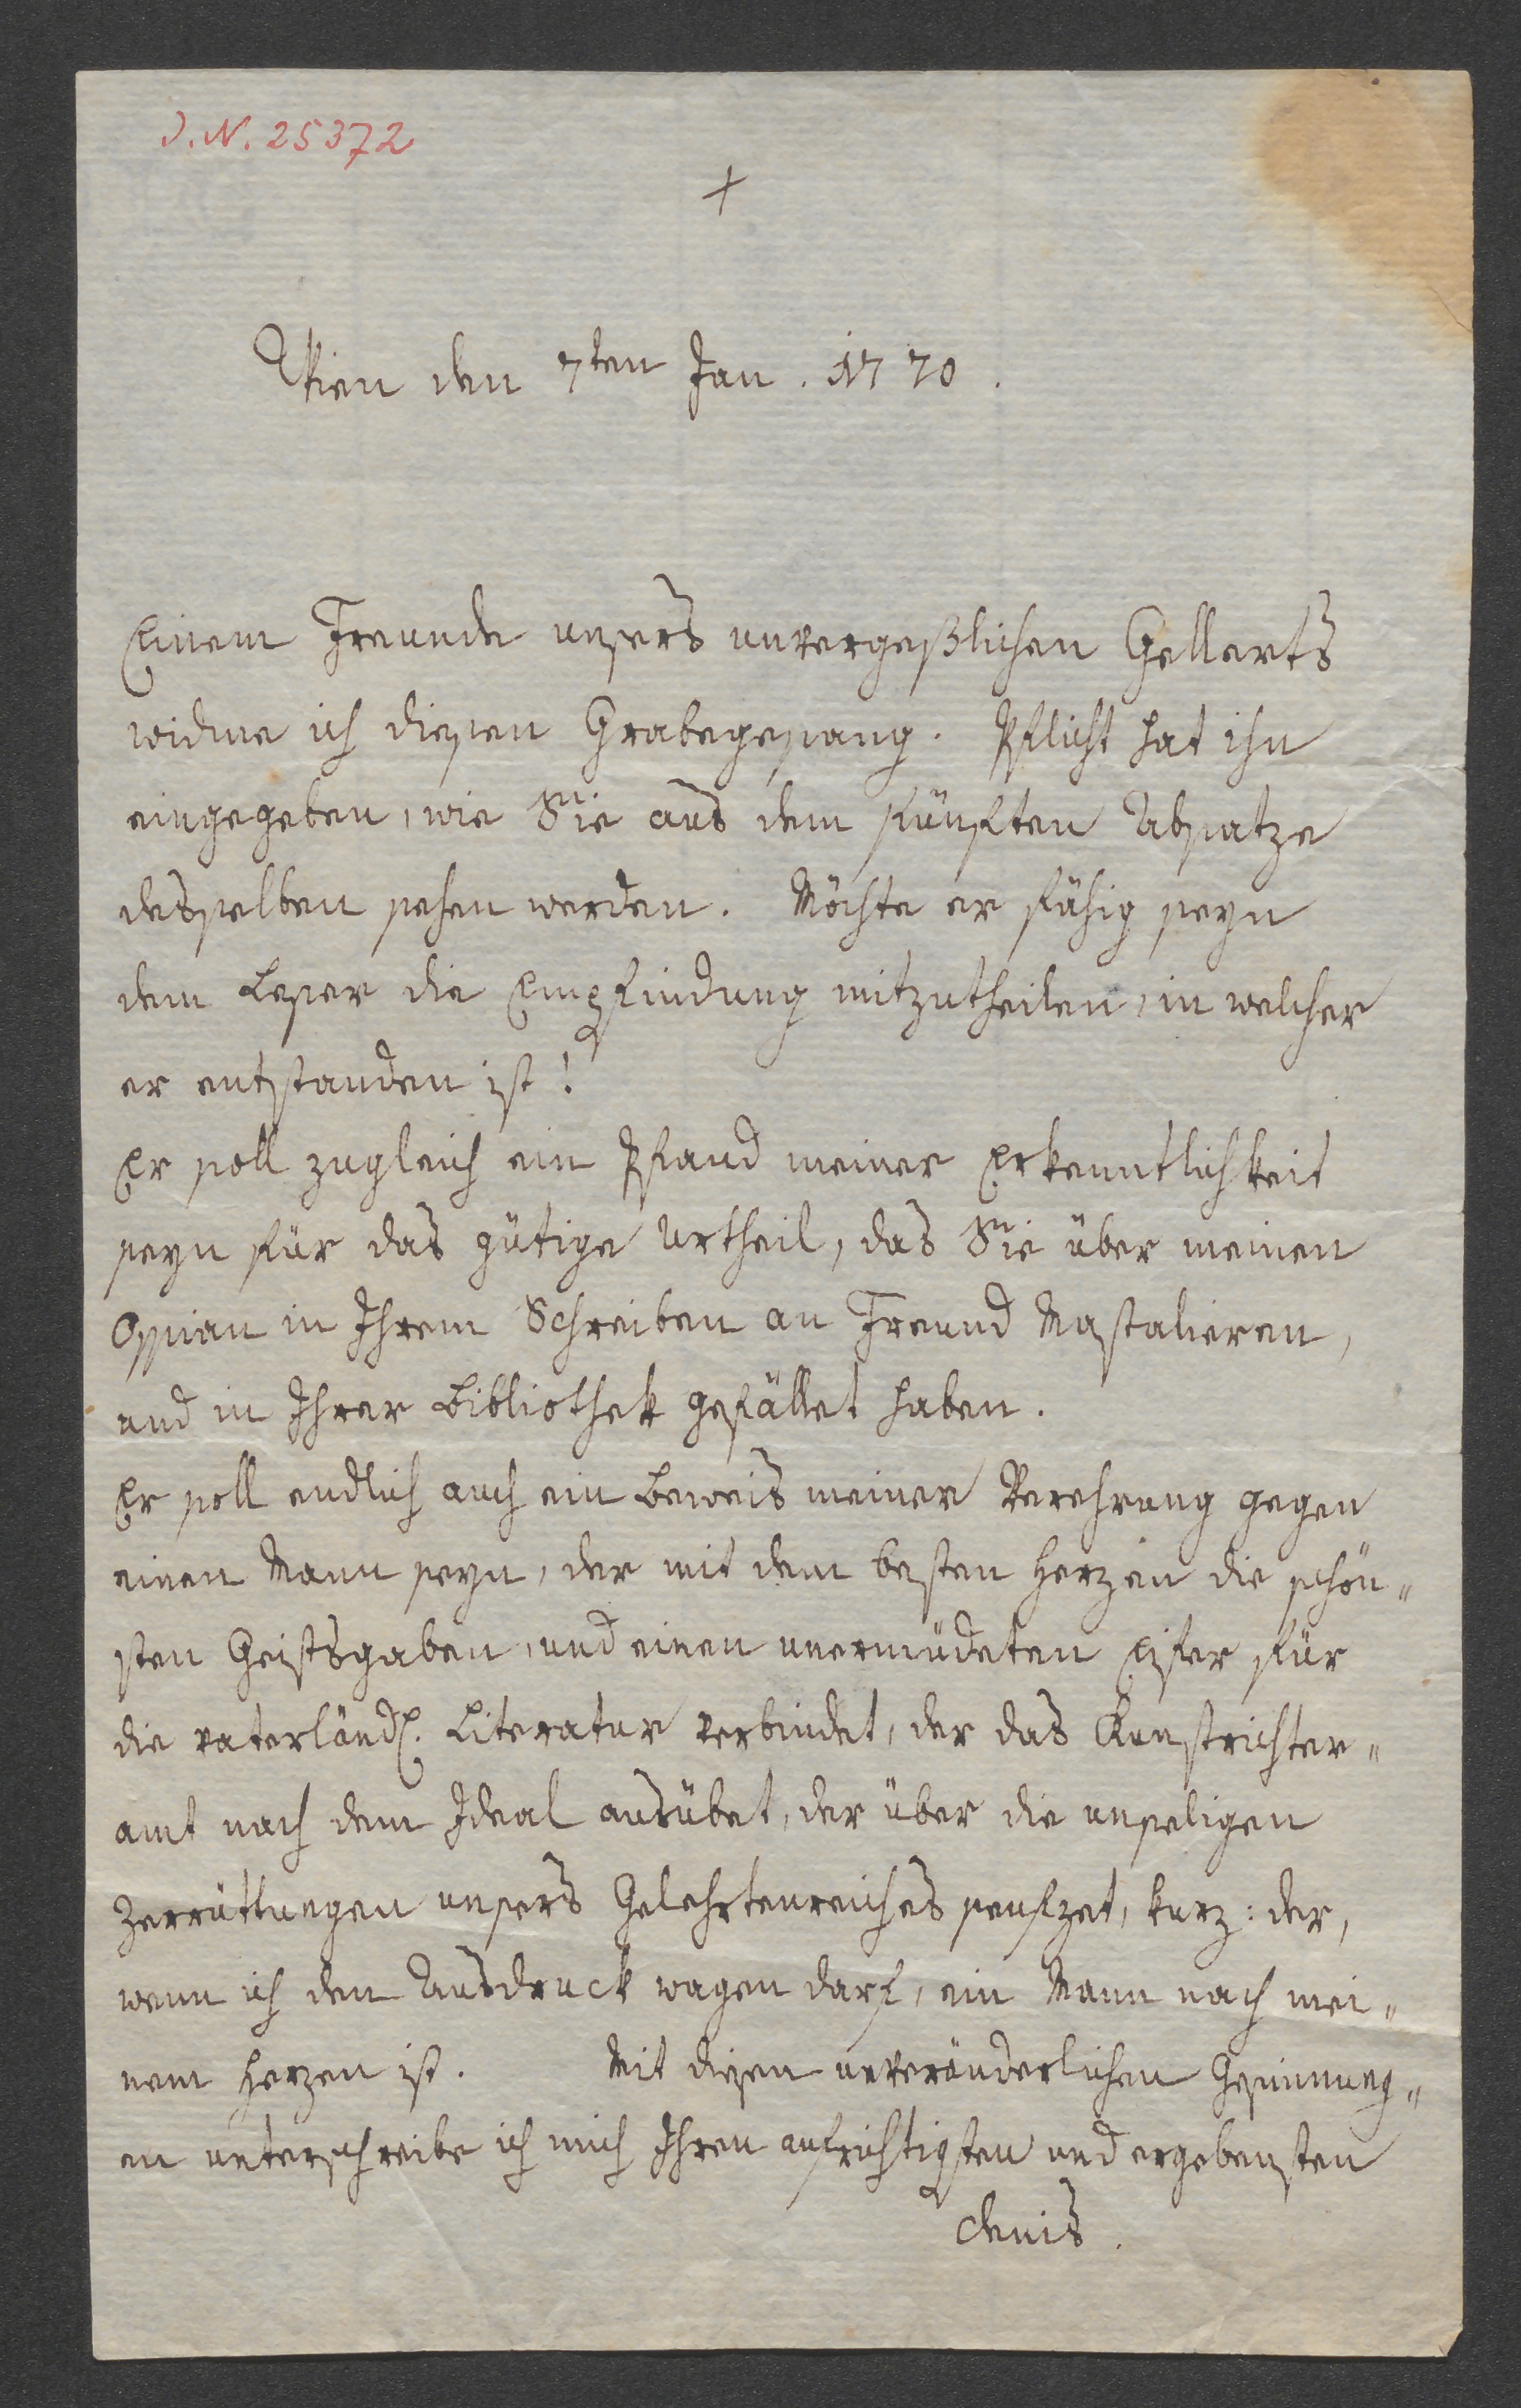 J. N. 25372
+
Wien den 7ten Jan. 1770.
Einem Freunde unsers unvergeßlichen Gellerts
widme ich diesen Grabegesang. Pflicht hat ihn
eingegeben, wie Sie aus dem fünften Absatze
desselben sehen werden. Möchte er fähig seyn
dem Leser die Empfindung mitzutheilen, in welcher
er entstanden ist!
Er soll zugleich ein Pfand meiner Erkenntlichkeit
seyn für das gütige Urtheil, das Sie über meinen
Ossian in Ihrem Schreiben an Freund Mastalieren,
und in Ihrer Bibliothek gefället haben.
Er soll endlich auch ein Beweis meiner Verehrung gegen
einen Mann seyn, der mit dem besten Herzen die schön„
sten Geistsgaben, und einen unermüdeten Eifer für
die vaterländ. Literatur verbindet, der das Kunstrichter„
amt nach dem Ideal ausübet, der über die unseligen
Zerrüttungen unsers Gelehrtenreiches seufzet, kurz: der,
wenn ich den Ausdruck wagen darf, ein Mann nach mei„
nem Herzen ist. Mit diesen unveränderlichen Gesinnung„
en unterschreibe ich mich Ihren aufrichtigsten und ergebensten
Denis.